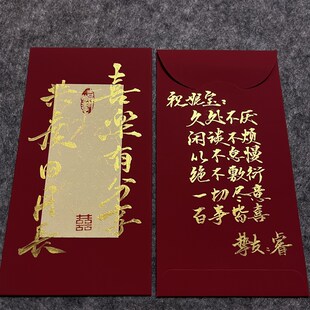 喜樂有分享
共度日月長
囍
祝姬宝：
久处不厌
闲谈不烦
从不怠慢
绝不敷衍
一切尽意
百事皆喜
挚友：睿